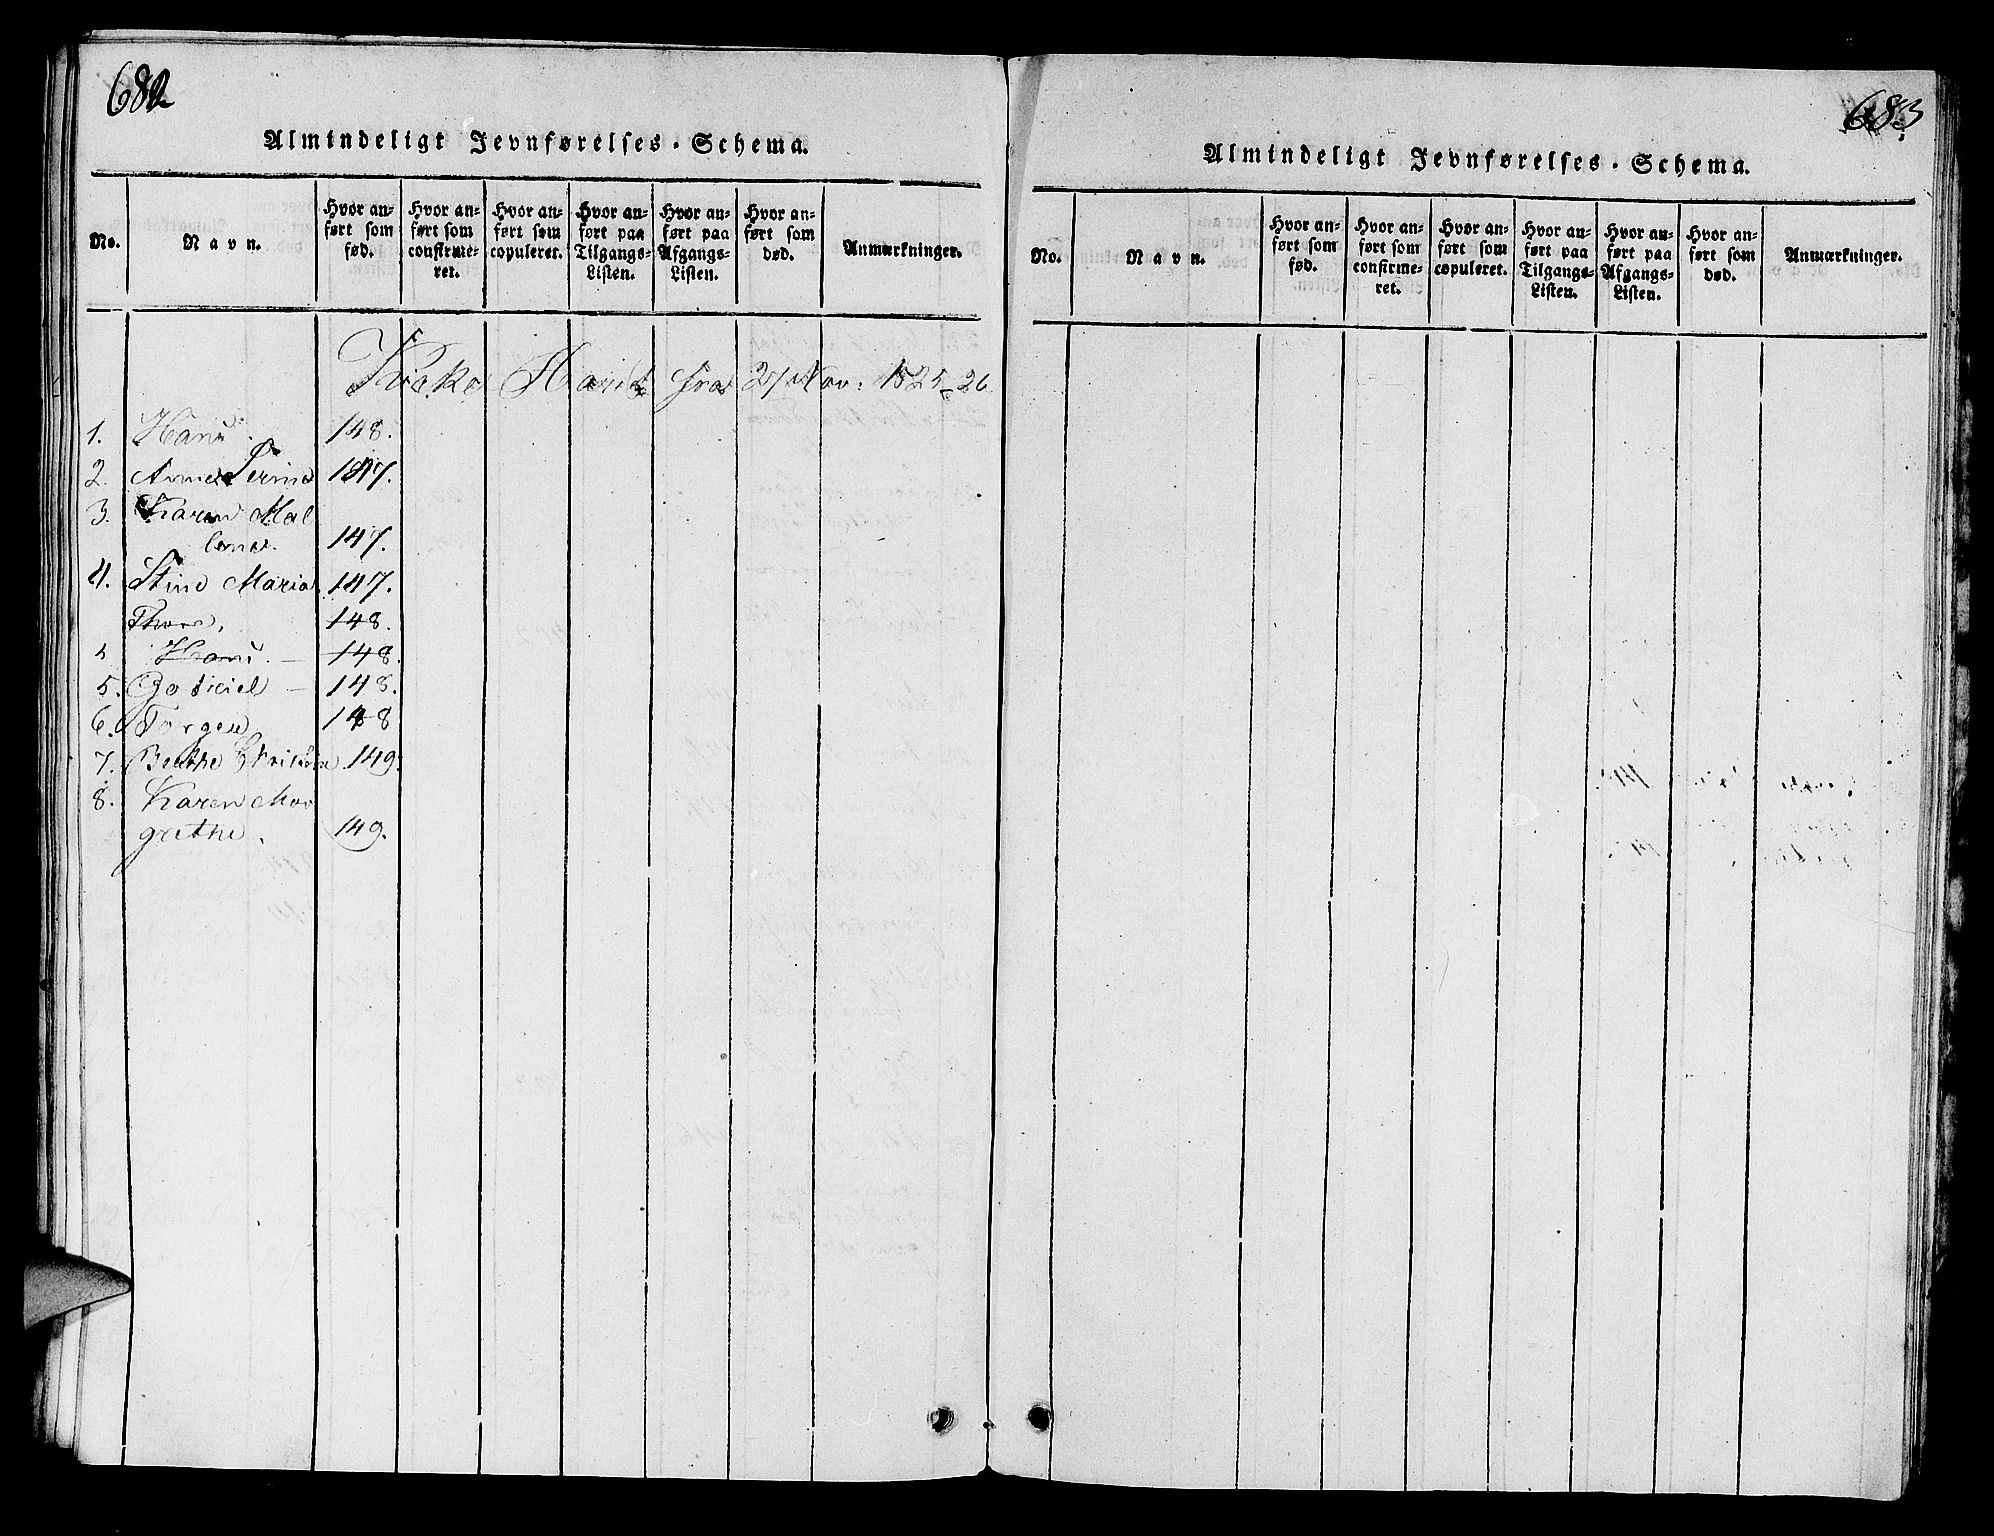 682
Almindeligt Jevnførelses-Schema.
No. Navn. Hvor anført som fød. Hvor anført som confirmeret. Hvor anført som copuleret. Hvor anført paa Tilgangs-Listen. Hvor anført paa Afgangs-Listen. Hvor anført som død. Anmærkninger.
Kirke fra 27 Nov: 1825-26
1. Hans. 148.
2. Anne Serine 147.
3. Karen Mal
lene. 147.
4. Stine Maria 147.
Thore, 148.
Hans. — 148.
5. Gotskiel — 148.
6. Torger 148
7. Berthe Christine 149.
8. Karen Mar
grethe. 149.
683
Almindeligt Jevnførelses-Schema.
No. Navn. Hvor anført som fød. Hvor anført som confirmeret. Hvor anført som copuleret. Hvor anført paa Tilgangs-Listen. Hvor anført paa Afgangs-Listen. Hvor anført som død. Anmærkninger.